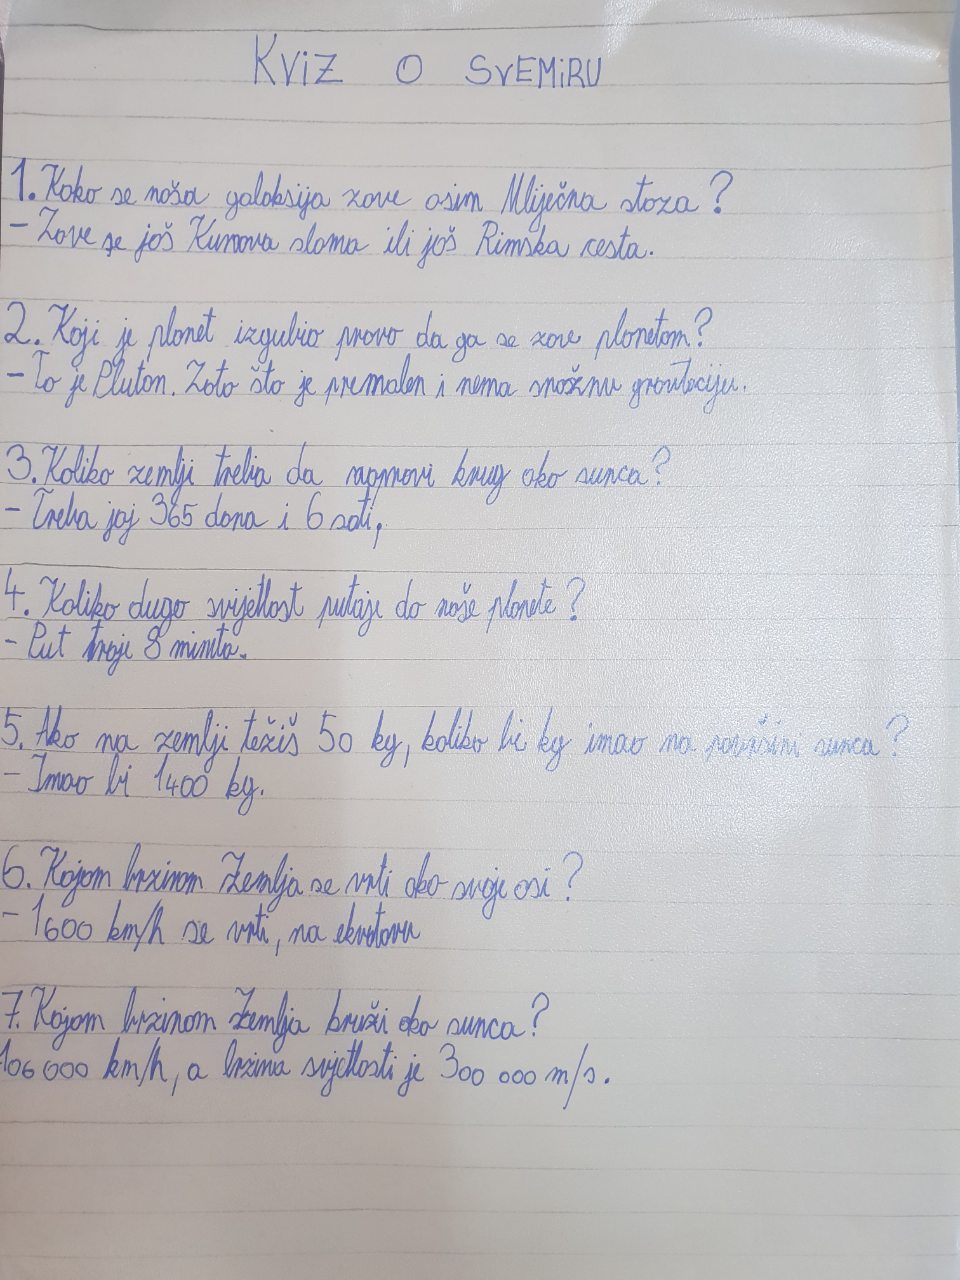 KViZ O SVEMiRU
1. Kako se naša galaksija zove osim Mliječna staza?
- Zove se još Kumova slama ili još Rimska cesta.
2. Koji je planet izgubio pravo da ga se zove planetom?
- To je Pluton. Zato što je premalen i nema snažnu gravitaciju.
3. Koliko zemlji treba da napravi krug oko sunca?
- Treba joj 365 dana i 6 sati,
4. Koliko dugo svijetlost putuje do naše planete?
- Put traje 8 minuta.
5. Ako na zemlji težiš 50 kg, koliko bi kg imao na površini sunca?
- Imao bi 1400 kg.
6. Kojom brzinom Zemlja se vrti oko svoje osi?
- 1600 km/h se vrti, na ekvatoru
7. Kojom brzinom Zemlja kruži oko sunca?
106 000 km/h, a brzina svjetlosti je 300 000 m/s.